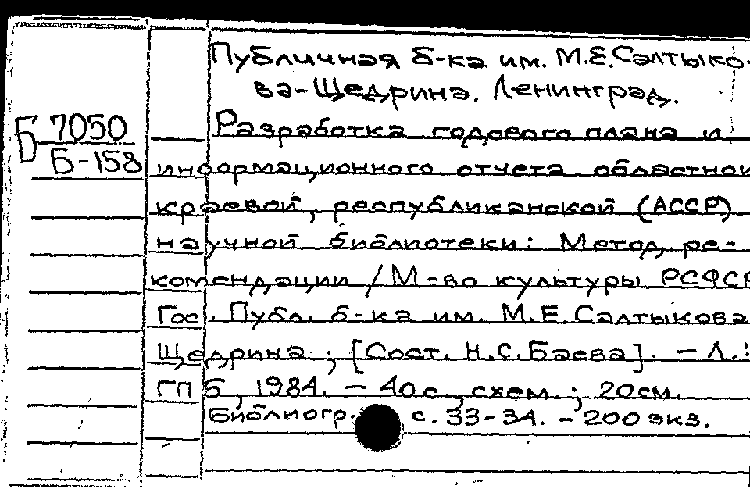 Публичная б-ка им. М.Е.Салтыко-
ва-Щедрина. Ленинград.
Б 7050
Б-158
Разработка годового плана и
информационного отчета областной
краевой, республиканской (АССР)
научной библиотеки: Метод. ре-
комендации / М-во культуры РСФСР
Гос. Публ. б-ка им. М.Е.Салтыкова
Щедрина ; [Сост. Н.С.Баева]. - Л.:
ГПБ, 1984. - 40с., схем. ; 20см.
Библиогр. с. 33-34. - 200 экз.